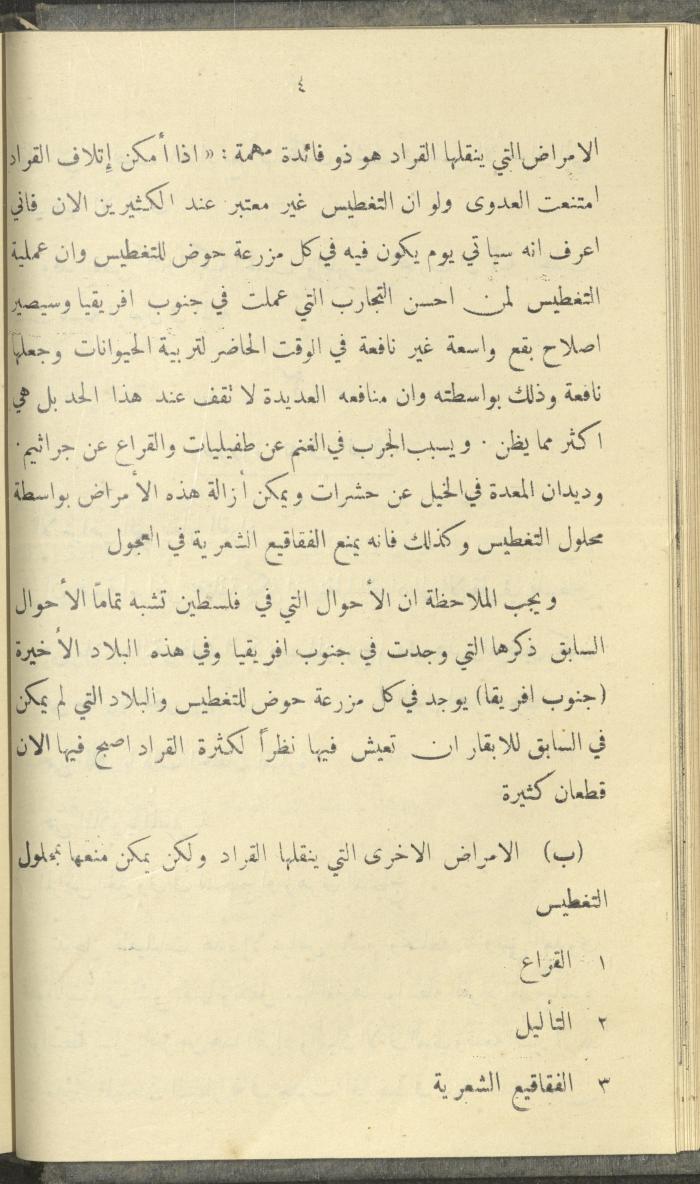 ٤
الامراض التي ينقلها القراد هو ذو فائدة مهمة : « اذا أمكن إتلاف القراد
امتنعت العدوى ولو ان التغطيس غير معتبر عند الكثيرين الان فاني
اعرف انه سيأتي يوم يكون فيه في كل مزرعة حوض للتغطيس وان عملية
التغطيس لمن احسن التجارب التي عملت في جنوب افريقيا وسيصير
اصلاح بقع واسعة غير نافعة في الوقت الحاضر لتربية الحيوانات وجعلها
نافعة وذلك بواسطته وان منافعه العديدة لا تقف عند هذا الحد بل هي
اكثر مما يظن . ويسبب الجرب في الغنم عن طفيليات والقراع عن جراثيم .
وديدان المعدة في الخيل عن حشرات ويمكن أزالة هذه الأمراض بواسطة
محلول التغطيس وكذلك فانه يمنع الفقاقيع الشعرية في العجول
ويجب الملاحظة ان الأحوال التي في فلسطين تشبه تماماً الأحوال
السابق ذكرها التي وجدت في جنوب افريقيا وفي هذه البلاد الأخيرة
(جنوب افريقا) يوجد في كل مزرعة حوض للتغطيس والبلاد التي لم يمكن
في السابق للابقار ان تعيش فيها نظراً لكثرة القراد اصبح فيها الان
قطعان كثيرة
(ب) الامراض الاخرى التي ينقلها القراد ولكن يمكن منعها بمحلول
التغطيس
١ القراع
٢ التأليل
٣ الفقاقيع الشعرية